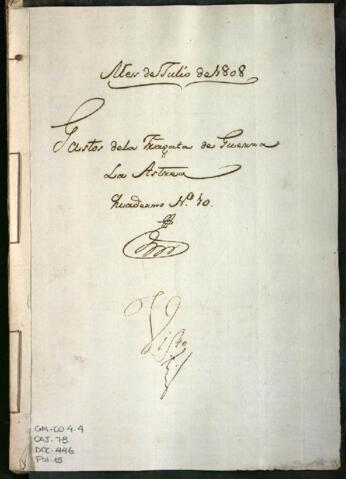 Mes de Julio de 1808
Gastos de la Fragata de Guerra
La Astrea
Quaderno Nº 10.
Visto
GM-CO 4-4
CAJ. 78
DOC. 446
FOL. 15